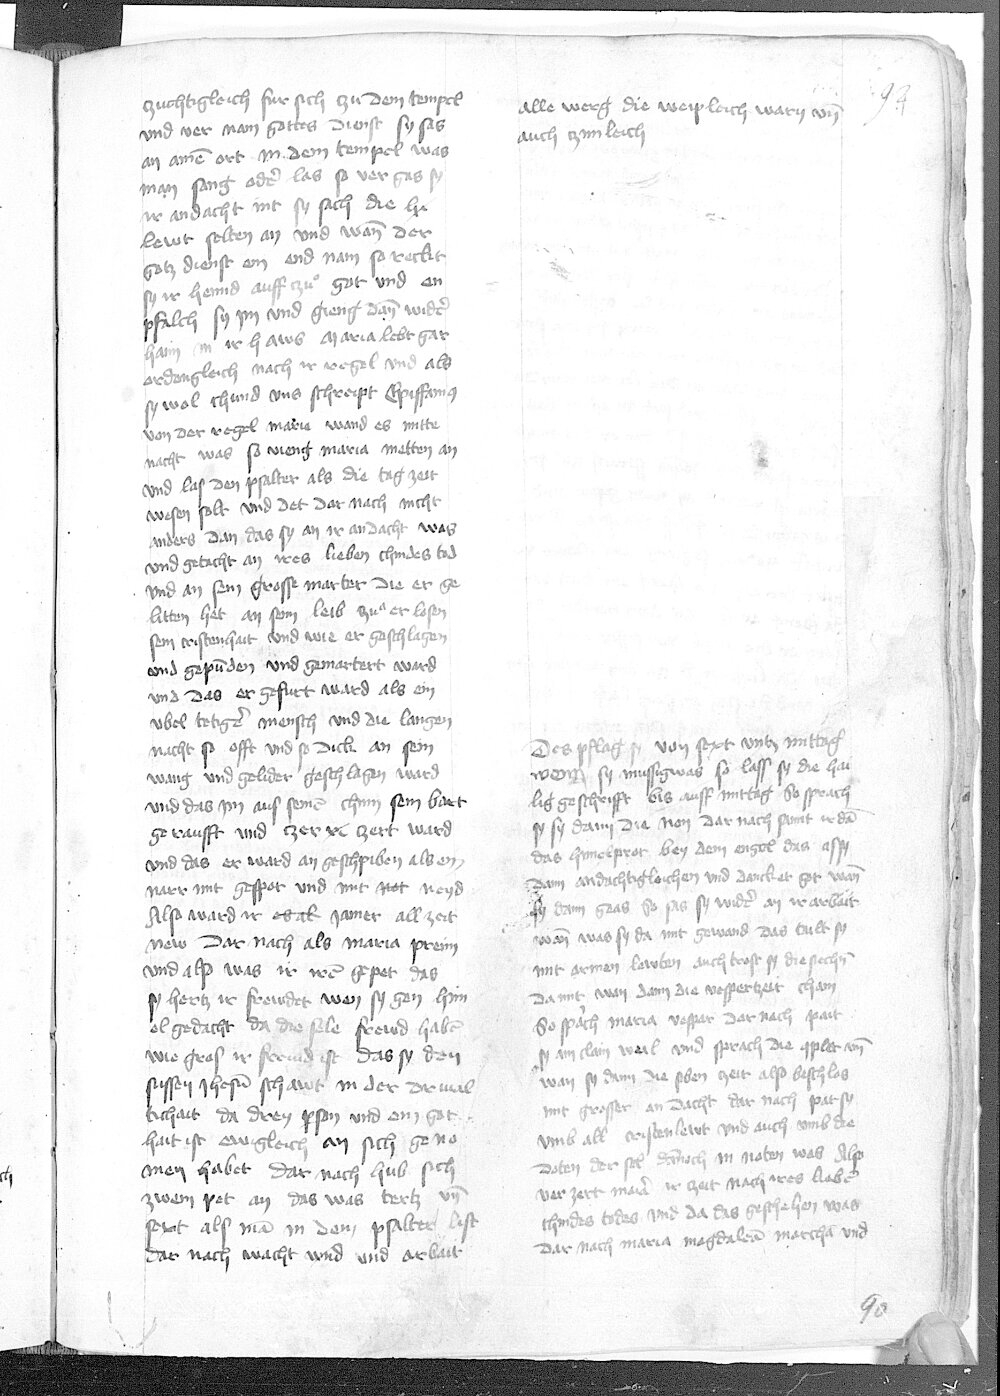 czuchtigleich fur sich czu dem tempel
und ver nam gottes dienst sy sas
an aine ort in dem tempel was
man sang oder las so ver gas sy
ir andacht nit sy sach die
lewt selten an und wann der
gotz dienst ein end nam so reckt
sy ir hennd auff czu got und en
pfalch sy im und gieng dann wider
haim in ir haws Maria lebt gar
ordengleich nach ir regel und als
sy wol chund uns schreipt Epiffanius
von der regel maria wand es mitte
nacht was so vieng maria metten an
und las den psalter als die tag zeit
wesen solt und det dar nach nicht
anders dan das sy an ir andacht was
und gedacht an ires lieben chindes tod
und an sein grosse marter die er ge
litten het an seim leib zu er losen
sein cristenhait und wie er geschlagen
und gepunden und gemartert ward
und das er gefurt ward als ein
ubel tetiger mensch und die langen
nacht so offt und so dick an sein
wang und gelider geschlagen ward
und das im aus seinem chinn sein bart
geraufft und czer czert ward
und das er ward an gespiben als ein
narr mit gespot und mit neyd
Also ward ir jamer all zeit
new Dar nach als maria preim
und also was ir ire gepet das
sy hertz ir frewdet wen sy gen him
el gedacht da die sele frewd haben
wie gros ir frewd ist das sy den
sussen jhesu schawt in der drival
tichait da drey person und ein got
hait ist ewigleich an sich geno
men habet dar nach hub sich
zwein pet an das was tertz und
sext als man in dem psalter list
dar nach wacht wnd und arbait
94
alle werg die weipleich warn und
auch czimleich
Des pflag sy von sext untz mittag
wenn sy mussig was so lass sy die hai
lig geschrifft bis auff mittag So sprach
sy sy dann die non Dar nach samt ir dan
das himelprot bey dem engel das assy
dann andachtigleichen und dancket got wann
sy dann geas So sas sy wider an ir arbait
wann was sy da mit gewand das tailt sy
mit armen lewten auch trost sy die siechen
da mit wan dann die vesperzeit cham
So sprach maria vesper dar nach pait
sy ain clain weil und sprach die complet und
wan sy dann die siben zeit also beschlos
mit grosser andacht dar nach pat sy
umb all cristenlewt und auch umb die
doten der sel dannoch in noten was Also
ver zert maria ir zeit nach ires lieben
chindes todes und da das geschehen was
dar nach maria magdalena martha und
90